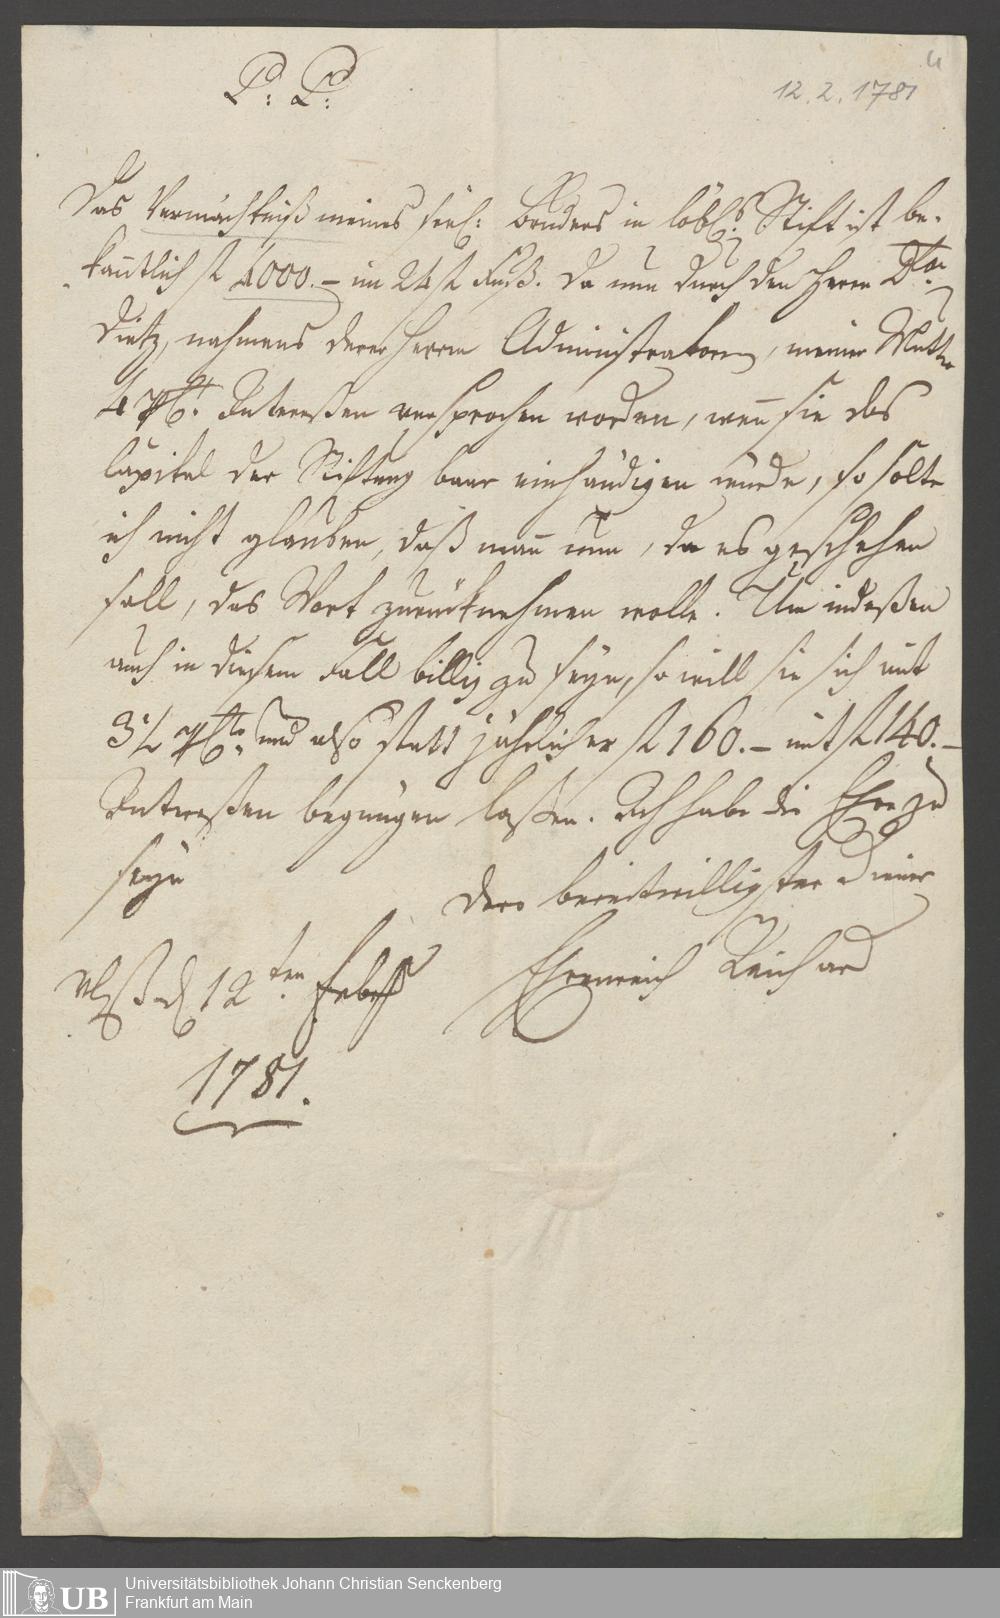 P. P.
12.2.1781
Das Vermächtniß meines seel: Bruders in löbl. Stift ist be-
kantlich fl 4000.– im 24 fl Fuß. Da nun durch den Herrn
Dietz, nahmens derer Herrn Administratoren, meiner Mutter
4 pCt. Interessen versprochen worden, wenn sie das
Capital der Stiftung baar einhändigen würde, so solte
ich nicht glauben, daß man nun, da es geschehen
soll, das Wort zurücknehmen wolle. Um indeßen
auch in diesem Fall billig zu seyn, so will sie sich mit
3½ pCto. und also statt jährlicher fl 160.– mit fl 140.–
Interessen begnügen laßen. Ich habe die Ehre zu
seyn
Dero bereitwilligster Diener
Ehrenreich Reichard
d 12ten Febr
1781.
UB
Universitätsbibliothek Johann Christian Senckenberg
Frankfurt am Main